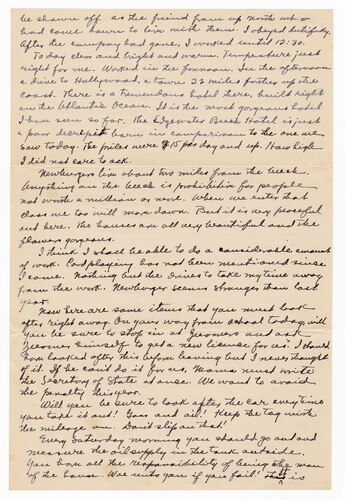 be shown off as the friend from up North who
had come down to live with them. I obeyed dutifully.
After the company had gone, I worked until 12:30.
To day clear and bright and warm. Temperature just
right for me. Worked in the forenoon. In the afternoon
a drive to Hollywood, a town 22 miles farther up the
coast. There is a tremendous hotel there, built right
on the Atlantic Ocean. It is the most gorgeous hotel
I have seen so far. The Edgewater Beach Hotel is just
a poor decrepit barn in comparison to the one we
saw today. The prices were $15 per day and up. How high
I did not care to ask.
Newburgers live about two miles from the beach.
Anything on the beach is prohibitive for people
not worth a million or more. When we enter that
class we too will move down. But it is very peaceful
out here. The houses are all very beautiful and the
flowers gorgeous.
I think I shall be able to do a considerable amount
of work. Card playing has not been mentioned since
I came. Nothing but the drives to take my time away
from the work. Newburger seems stronger than last
year.
Now here are some items that you must look
after right away. On your way from school today, will
you be sure to stop in at and ask
himself to get a new license for us. I should
have looked after this before leaving but I never thought
of it. If he can't do it for us, Mama must write
the Secretary of State at once. We want to avoid
the penalty this year.
Will you be sure to look after the car every time
you take it out! Gas and oil! Keep the tag with
the mileage on. Don't slip on that!
Every Saturday morning you should go out and
measure the oil supply in the tank outside.
You have all the responsibility of being the man
of the house. Woe unto you if you fail! This is